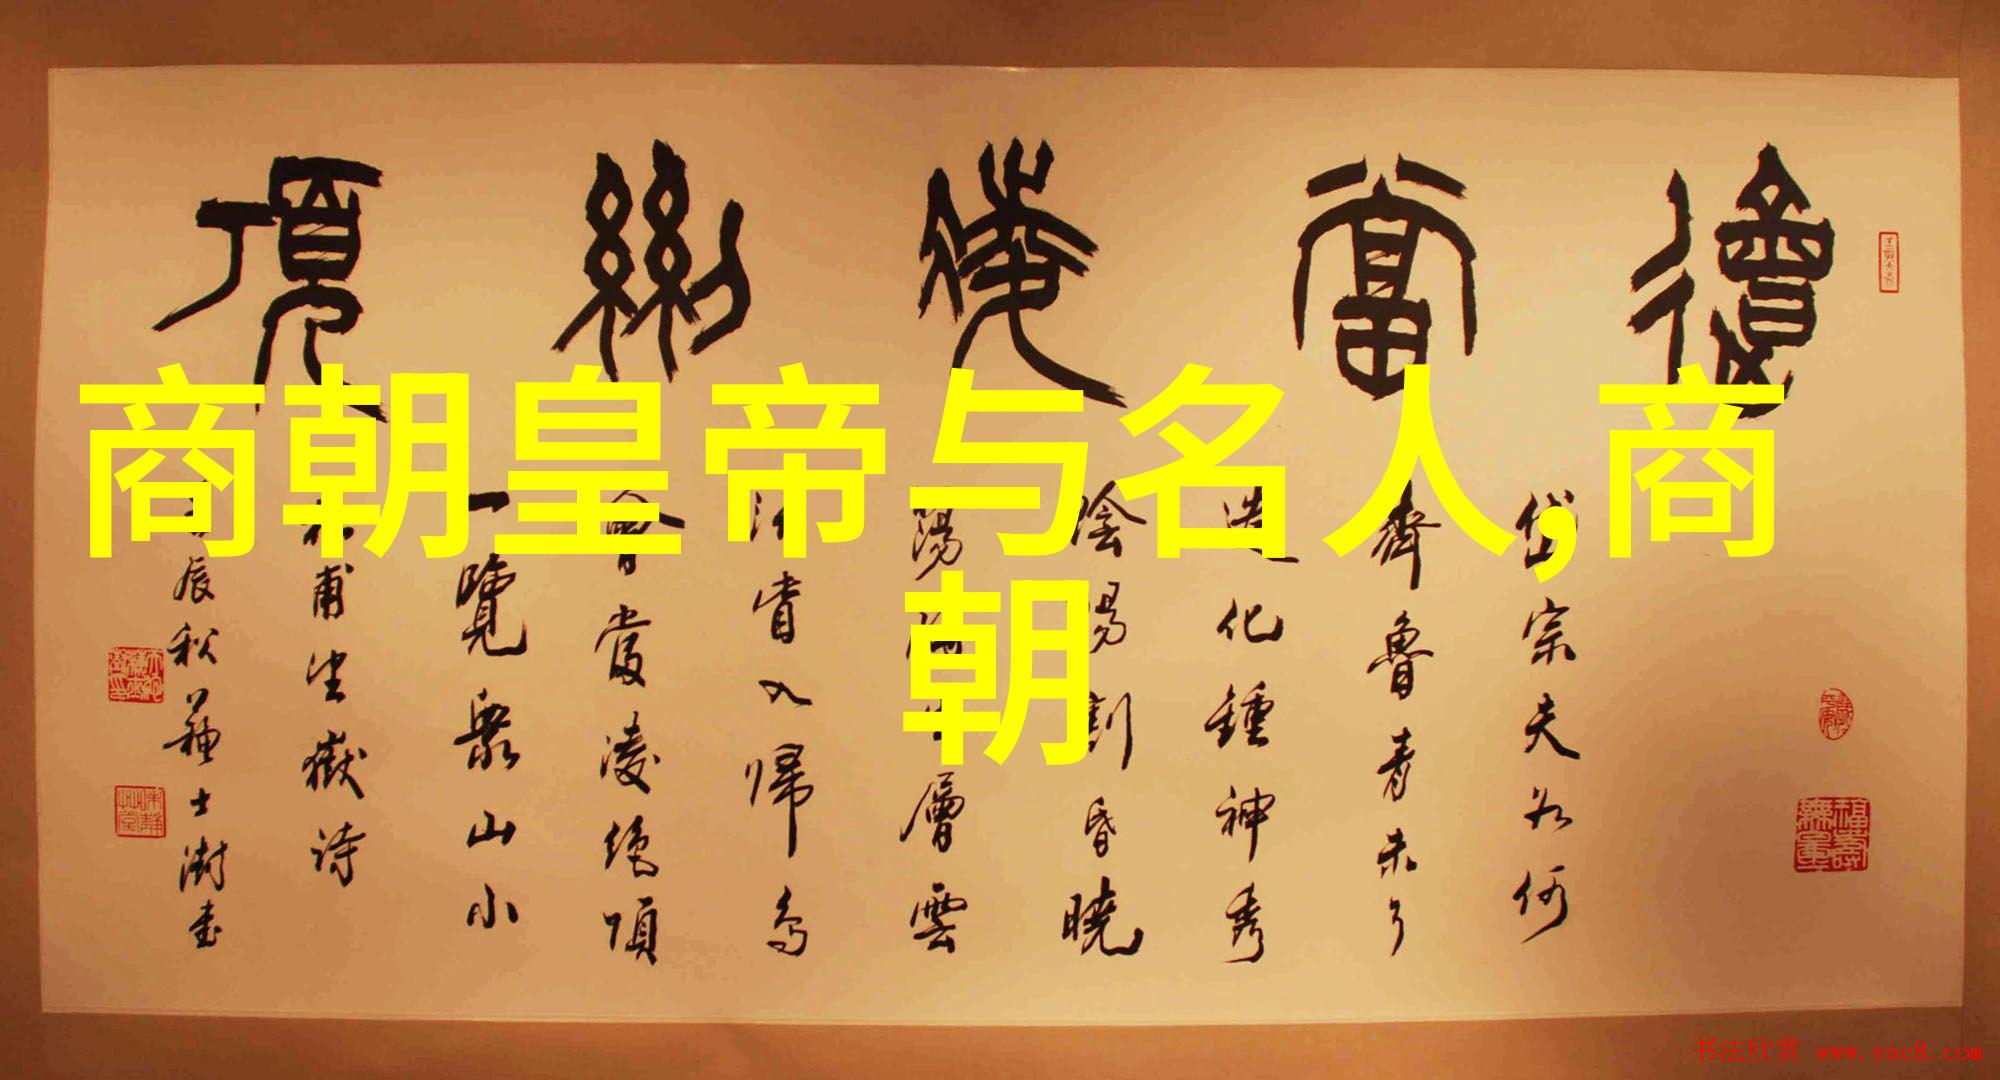 商朝皇帝与名人,商
朝
會當凌絕頂
岱宗夫如何
齊魯青未了
造化鍾神秀
陰陽割昏曉
蕩胸生層雲
決眥入歸鳥
會當凌絕頂
一覽眾山小
杜甫望嶽詩
壬辰秋蘇士澍書
福壽無量
书法欣赏 www.yac8.com